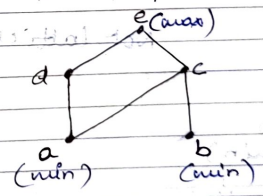 e (max)
d
c
a
b
(min)
(min)